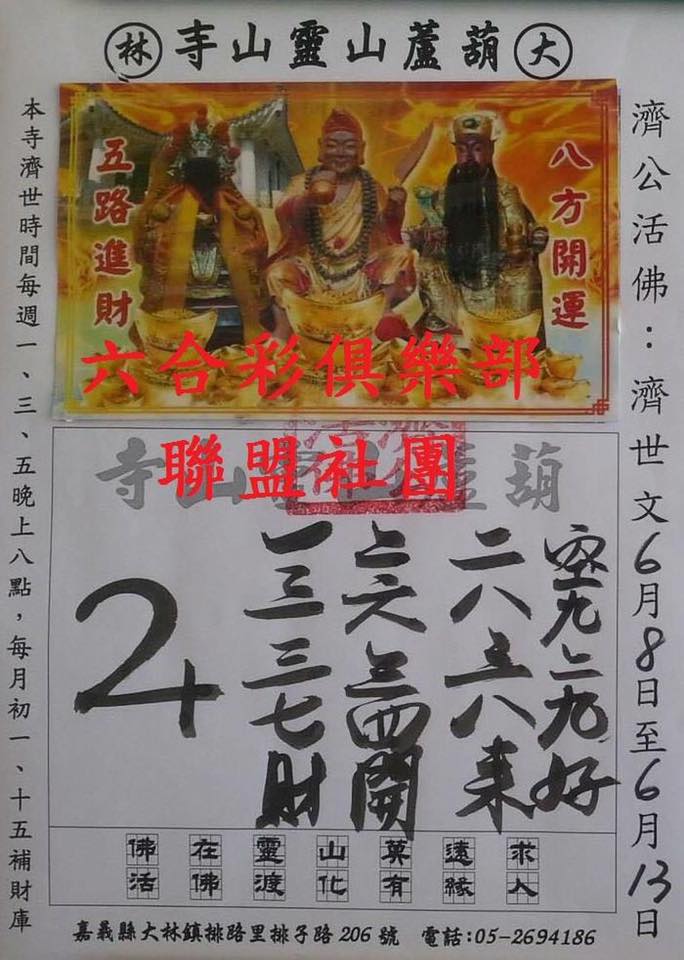 大葫蘆山靈山寺林
濟公活佛：濟世文6月8日至6月13日
八方開運
五路進財
六合彩俱樂部
聯盟社團
空九二九好
二八五八来
二六三四開
一三三七財
24
佛在靈山莫遠求
活佛渡化有緣人
本寺濟世時間每週一、三、五晚上八點，每月初一、十五補財庫
嘉義縣大林鎮排路里排子路206號 電話:05-2694186